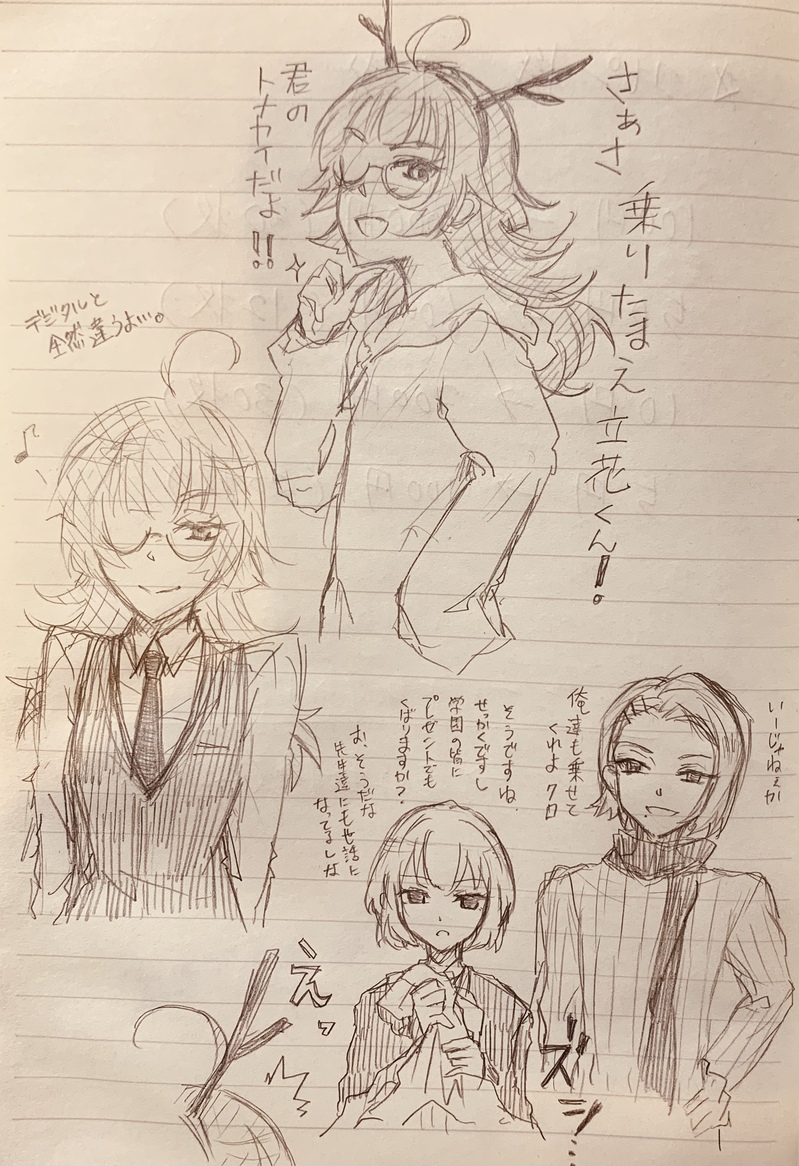 さぁさ
乗りたまえ立花くん!。
君の
トナカイだよ!!
デジタルと
全然違うよ…。
いーじゃねぇか
俺達も乗せて
くれよクロ
そうですね、
せっかくですし
学園の皆に
プレゼントでも
くばりますか?
お、そうだな
先生達にも世話に
なってるしな
えッ
ズシ…